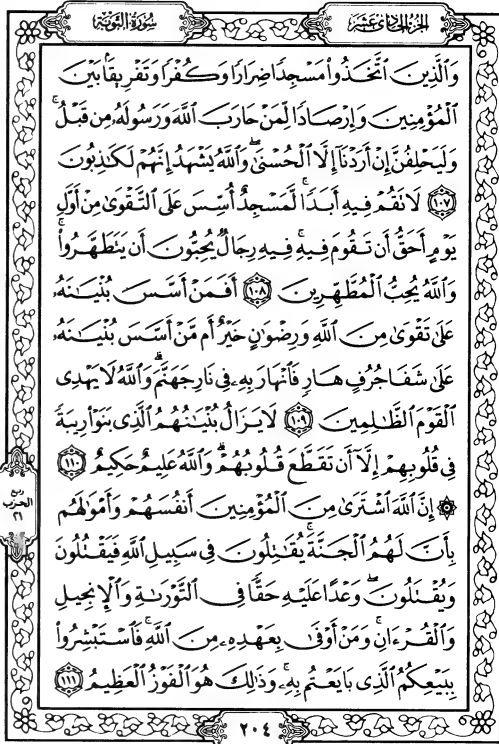 الجزء الحادي عشر
سورة التوبة
وَالَّذِينَ اتَّخَذُوا مَسْجِدًا ضِرَارًا وَكُفْرًا وَتَفْرِيقًا بَيْنَ
الْمُؤْمِنِينَ وَإِرْصَادًا لِّمَنْ حَارَبَ اللَّهَ وَرَسُولَهُ مِن قَبْلُ ۚ
وَلَيَحْلِفُنَّ إِنْ أَرَدْنَا إِلَّا الْحُسْنَىٰ ۖ وَاللَّهُ يَشْهَدُ إِنَّهُمْ لَكَاذِبُونَ
﴿١٠٧﴾ لَا تَقُمْ فِيهِ أَبَدًا ۚ لَّمَسْجِدٌ أُسِّسَ عَلَى التَّقْوَىٰ مِنْ أَوَّلِ
يَوْمٍ أَحَقُّ أَن تَقُومَ فِيهِ ۚ فِيهِ رِجَالٌ يُحِبُّونَ أَن يَتَطَهَّرُوا ۚ
وَاللَّهُ يُحِبُّ الْمُطَّهِّرِينَ ﴿١٠٨﴾ أَفَمَنْ أَسَّسَ بُنْيَـٰنَهُ
عَلَىٰ تَقْوَىٰ مِنَ اللَّهِ وَرِضْوَٰنٍ خَيْرٌ أَم مَّنْ أَسَّسَ بُنْيَـٰنَهُ
عَلَىٰ شَفَا جُرُفٍ هَارٍ فَانْهَارَ بِهِ فِي نَارِ جَهَنَّمَ ۗ وَاللَّهُ لَا يَهْدِي
الْقَوْمَ الظَّـٰلِمِينَ ﴿١٠٩﴾ لَا يَزَالُ بُنْيَـٰنُهُمُ الَّذِي بَنَوْا رِيبَةً
فِي قُلُوبِهِمْ إِلَّا أَن تَقَطَّعَ قُلُوبُهُمْ ۗ وَاللَّهُ عَلِيمٌ حَكِيمٌ ﴿١١٠﴾
۞ إِنَّ اللَّهَ اشْتَرَىٰ مِنَ الْمُؤْمِنِينَ أَنفُسَهُمْ وَأَمْوَٰلَهُم
بِأَنَّ لَهُمُ الْجَنَّةَ ۚ يُقَـٰتِلُونَ فِي سَبِيلِ اللَّهِ فَيَقْتُلُونَ
وَيُقْتَلُونَ ۖ وَعْدًا عَلَيْهِ حَقًّا فِي التَّوْرَىٰةِ وَالْإِنجِيلِ
وَالْقُرْءَانِ ۚ وَمَنْ أَوْفَىٰ بِعَهْدِهِ مِنَ اللَّهِ ۚ فَاسْتَبْشِرُوا
بِبَيْعِكُمُ الَّذِي بَايَعْتُم بِهِ ۚ وَذَٰلِكَ هُوَ الْفَوْزُ الْعَظِيمُ ﴿١١١﴾
ربع
الحزب
٢١
٢٠٤